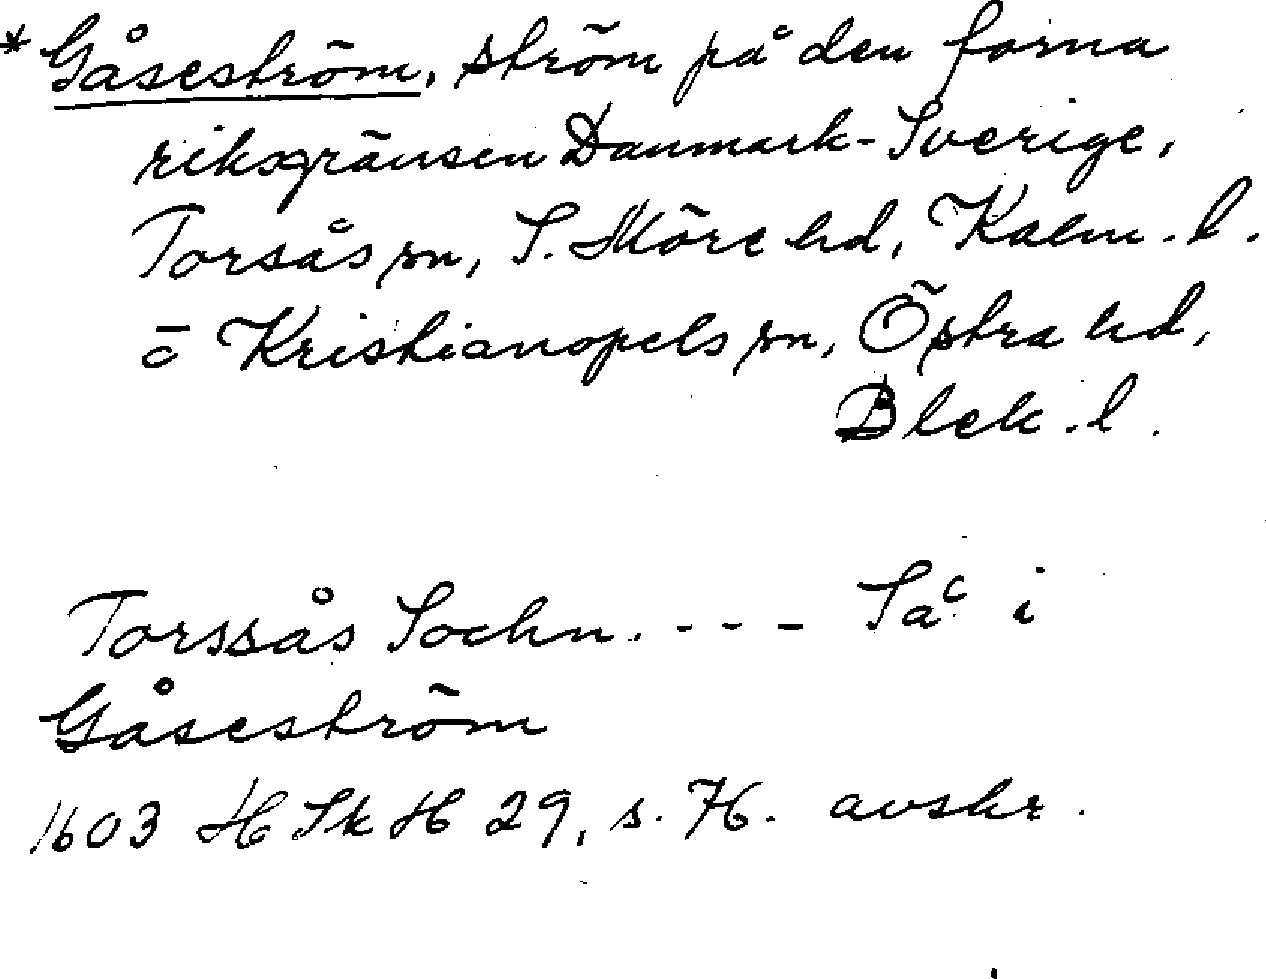 * Gåseström, ström på den forna
riksgränsen Danmark-Sverige,
Torsås sn, S. Möre hd, Kalm. l.
o Kristianopels sn, Östra hd,
Blek. l.
Torssås Sochn. - - - - Sac i
Gåseström
1603 HSkH 29, s. 76. avskr.